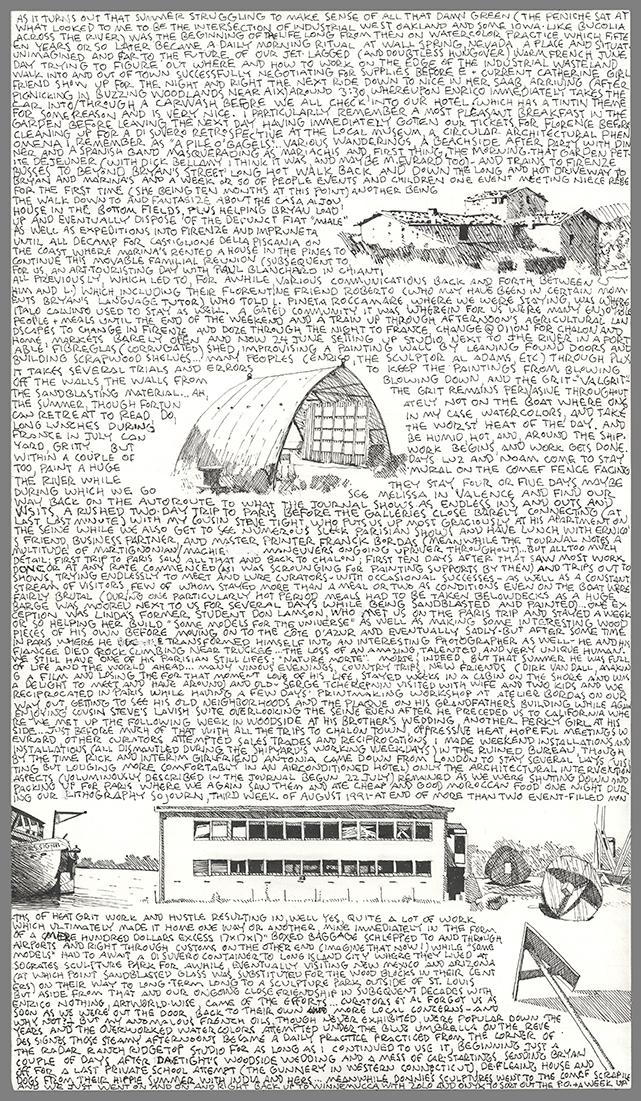 AS IT TURNS OUT THAT SUMMER STRUGGLING TO MAKE SENSE OF ALL THAT DAMN GREEN (THE PENICHE SAT AT
WHAT LOOKED TO ME TO BE THE INTERSECTION OF INDUSTRIAL WEST OAKLAND AND SOME IOWA-LIKE BUCOLIA
ACROSS THE RIVER) WAS THE BEGINNING OF A LIFE LONG FROM THEN ON WATERCOLOR PRACTICE WHICH FIFTE-
EN YEARS OR SO LATER BECAME A DAILY MORNING RITUAL AT WALL SPRING, NEVADA, A PLACE AND SITUAT-
UNIMAGINED AND FAR TO THE FUTURE OF OUR JET LAGGED (AND DOUBTLESS HUNGOVER) WARM FRENCH JUNE
DAY TRYING TO FIGURE OUT WHERE AND HOW TO WORK ON THE EDGE OF THE INDUSTRIAL WASTELAND
WALK INTO AND OUT OF TOWN SUCCESSFULLY NEGOTIATING FOR SUPPLIES BEFORE E + CURRENT CATHERINE GIRL
FRIEND SHOW UP FOR THE NIGHT AND RIGHT THE NEXT RIDE DOWN TO NICE IN HER SAAB, ARRIVING (AFTER
PICNICING IN BUZZING WOODLANDS NEAR AIX) AROUND 3:30, WHEREUPON ENRICO IMMEDIATELY TAKES THE
CAR INTO/THROUGH A CARWASH BEFORE WE ALL CHECK INTO OUR HOTEL (WHICH HAS A TINTIN THEME
FOR SOME REASON AND IS VERY NICE - I PARTICULARLY REMEMBER A MOST PLEASANT BREAKFAST IN THE
GARDEN BEFORE LEAVING THE NEXT DAY HAVING IMMEDIATELY GOTTEN OUR TICKETS FOR FLORENCE BEFORE
CLEANING UP FOR A DI SUVERO RETROSPECTIVE AT THE LOCAL MUSEUM, A CIRCULAR ARCHITECTURAL PHEN-
OMENA I REMEMBER AS "A PILE O' BAGELS". VARIOUS WANDERINGS, A BEACHSIDE AFTER PARTY WITH DIN-
NER AND A SPANISH BAND MASQUERADING AS MARIACHIS AND, FIRST THING THE MORNING, THAT GARDEN PET-
ITE DEJEUNER (WITH DICK BELLAMY I THINK IT WAS, AND MAYBE M. EVRARD TOO) - AND TRAINS TO FIRENZE
BUSSES TO BEYOND BRYAN'S STREET LONG HOT WALK BACK AND DOWN THE LONG AND HOT DRIVEWAY TO
BRYAN AND MARINA'S AND A WEEK OR SO OF PEOPLE EVENTS AND CHILDREN ONE EVENT MEETING NIECE REBE
FOR THE FIRST TIME (SHE BEING TEN MONTHS AT THIS POINT) ANOTHER BEING
THE WALK DOWN TO AND FANTASIZE ABOUT THE CASA ALION
HOUSE IN THE BOTTOM FIELDS, PLUS HELPING BRYAN LOAD
UP AND EVENTUALLY DISPOSE OF THE DEFUNCT FIAT "MALE"
AS WELL AS EXPEDITIONS INTO FIRENZE AND IMPRUNETA
UNTIL ALL DECAMP FOR CASTIGLIONE DELLA PISCANIA ON
THE COAST WHERE MARINA'S RENTED A HOUSE IN THE PINES TO
CONTINUE THIS MOVABLE FAMILIAL REUNION (SUBSEQUENT TO,
FOR US, AN ART-TOURISTING DAY WITH PAUL BLANCHARD IN CHIANTI,
ALL PREVIOUSLY WHICH LED TO, FOR AWHILE VARIOUS COMMUNICATIONS BACK AND FORTH BETWEEN
HIM AND L) WHICH INCLUDING THEIR FLORENTINE FRIEND ROBERTO (WHO MAY HAVE BEEN IN CERTAIN MOM-
ENTS BRYAN'S LANGUAGE TUTOR) WHO TOLD L. PINETA ROCCAMARE WHERE WE WERE STAYING, WAS WHERE
ITALO CALVINO USED TO STAY AS WELL. A GATED COMMUNITY IT WAS WHEREIN FOR US WERE MANY ENJOYABLE
PEOPLE + MEALS UNTIL THE END OF THE WEEKEND AND A TRAIN UP THROUGH AFTERNOON'S AGRICULTURAL LAN-
DSCAPES TO CHANGE IN FIRENZE AND DOZE THROUGH THE NIGHT TO FRANCE, CHANGE @ DIJON FOR CHALON AND
HOME. MARKETS BARELY OPEN AND NOW 24 JUNE SETTING UP STUDIO NEXT TO THE RIVER IN A PORT-
ABLE FIBREGLASS (CORRUGATED) SHED, IMPROVISING A PAINTING WALL BY LEANING FOUND DOORS AND
BUILDING SCRAPWOOD SHELVES... MANY PEOPLES (ENRICO, THE SCULPTOR AL ADAMS, ETC) THROUGH PLUS
IT TAKES SEVERAL TRIALS AND ERRORS TO KEEP THE PAINTINGS FROM BLOWING
OFF THE WALLS, THE WALLS FROM BLOWING DOWN AND THE GRIT - "VALGRIT"
THE SANDBLASTING MATERIAL... AH, THE GRIT REMAINS PERVASIVE THROUGHOUT
THE SUMMER, THOUGH FORTUN ATELY NOT ON THE BOAT WHERE ONE
CAN RETREAT TO READ DO, IN MY CASE WATERCOLORS, AND TAKE
LONG LUNCHES DURING THE WORST HEAT OF THE DAY, AND
FRANCE IN JULY CAN BE HUMID, HOT, AND, AROUND THE SHIP-
YARD GRITY BUT WORK BEGINS, AND WORK GETS DONE.
WITHIN A COUPLE OF DAYS LUZ AND NOAM COME TO STAY
TOO, PAINT A HUGE MURAL ON THE COMEF FENCE FACING
THE RIVER WHILE THEY STAY FOUR OR FIVE DAYS MAYBE
DURING WHICH WE GO SEE MELISSA IN VALENCE AND FIND OUR
WAY BACK ON THE AUTOROUTE TO WHAT THE JOURNAL SHOWS AS ENDLESS INS AND OUTS AND
VISITS. A RUSHED TWO-DAY TRIP TO PARIS BEFORE THE GALLERIES CLOSE BARELY CONNECTING (AT
LAST LAST MINUTE) WITH MY COUSIN STEVE TIGHT WHO PUTS US UP MOST GRACIOUSLY AT HIS APARTMENT ON
THE SEINE WHILE WE ALSO GET TO SEE NUMEROUS SLEEK PARISIAN SHOWS AND HAVE LUNCH WITH ENRICO'
S FRIEND, BUSINESS PARTNER, AND MASTER PRINTER FRANCK BORDAS. MEANWHILE THE JOURNAL NOTES A
MULTITUDE OF MARTIGNONIAN/MACHIE- MANEUVERS ONGOING UPRIVER THROUGHOUT... BUT ALL TOO MUCH
DETAIL: FIRST TRIP TO PARIS SAW ALL THAT AND BACK TO CHALON, FIRST TEN DAYS AFTER THAT SAW MOST WORK
DONE OR AT ANY RATE COMMENCED (AS I WAS SCROUNGING FOR PAINTING SUPPORTS BY THEN) AND TRIPS OUT TO
SHOWS, TRYING ENDLESSLY TO MEET AND LURE CURATORS - WITH OCCASIONAL SUCCESSES - AS WELL AS A CONSTANT
STREAM OF VISITORS FEW OF WHOM STAYED MORE THAN A MEAL OR TWO AS CONDITIONS EVEN ON THE BOAT WERE
FAIRLY BRUTAL (DURING ONE PARTICULARLY HOT PERIOD MEALS HAD TO BE TAKEN BELOWDECKS AS A HUGE
BARGE WAS MOORED NEXT TO US FOR SEVERAL DAYS WHILE BEING SANDBLASTED AND PAINTED)... ONE EX-
CEPTION WAS LINDA'S FORMER STUDENT DON LAMSON WHO MET US ON THE PARIS TRIP AND STAYED A WEEK
OR SO HELPING HER BUILD "SOME MODELS FOR THE UNIVERSE" AS WELL AS MAKING SOME INTERESTING WOOD
PIECES OF HIS OWN BEFORE MOVING ON TO THE CÔTE D'AZUR AND EVENTUALLY SADLY - BUT AFTER SOME TIME
IN PARIS WHERE HE TRANSFORMED HIMSELF INTO AN INTERESTING PHOTOGRAPHER AS WELL - HE AND HIS
FIANCÉE DIED ROCK CLIMBING NEAR TRUCKEE... THE LOSS OF AN AMAZING TALENTED, AND VERY UNIQUE HUMAN.
WE STILL HAVE ONE OF HIS PARISIAN STILL LIFES: "NATURE MORTE". MORTE INDEED, BUT THAT SUMMER HE WAS FULL
OF LIFE AND THE WORLD AHEAD... MANY VINOUS EVENINGS, COUNTRY TRIP, NEW FRIENDS (DIRK VAN DALL, MAKIN-
G A FILM AND LOSING THE FOR THAT MOMENT LOVE OF HIS LIFE STAYED WEEKS IN A CABIN ON THE SHORE AND WAS
A DELIGHT TO MEET AND HAVE AROUND) AND OLD - SERGE TCHEREPNIN VISITED WITH WIFE AND TWO KIDS AND WE
RECIPROCATED IN PARIS WHILE HAVING A FEW DAYS' PRINTMAKING WORKSHOP AT ATELIER BORDAS ON OUR
WAY OUT, GETTING TO SEE HIS OLD NEIGHBORHOODS AND THE PLAQUE ON HIS GRANDFATHER'S BUILDING WHILE AGAIN
ENJOYING COUSIN STEVE'S LAVISH SUITE OVERLOOKING THE SEINE EVEN AFTER HE PRECEDED US TO CALIFORNIA WHE-
RE WE MET UP THE FOLLOWING WEEK IN WOODSIDE AT HIS BROTHER'S WEDDING, ANOTHER PERKY GIRL AT HIS
SIDE... JUST BEFORE MUCH OF THAT WITH ALL THE TRIPS TO CHALON TOWN, OPPRESSIVE HEAT, HOPEFUL MEETINGS W
EVRARD, OTHER CURATORS, ATTEMPTED SALES TRADES AND RECIPROCATIONS I MADE WEEKEND INSTALLATIONS AND
INSTALLATIONS (ALL DISMANTLED DURING THE SHIPYARD'S WORKING WEEKDAYS) IN THE RUINED BUREAU THOUGH
BY THE TIME RICK AND INTERIM GIRLFRIEND ANTONIA CAME DOWN FROM LONDON TO STAY SEVERAL DAYS (VISI-
TING BUT LODGING MORE COMFORTABLY IN AN AIRCONDITIONED HOTEL) ONLY THE ARCHITECTURAL INTERVENTION
ASPECTS (VOLUMINOUSLY DESCRIBED IN THE JOURNAL BEGUN 22 JULY) REMAINED AS WE WERE SHUTTING DOWN AND
PACKING UP FOR PARIS WHERE WE AGAIN SAW THEM AND ATE CHEAP AND GOOD MOROCCAN FOOD ONE NIGHT DUR-
ING OUR LITHOGRAPHY SOJOURN, THIRD WEEK OF AUGUST 1991 - AT END OF MORE THAN TWO EVENT-FILLED MON-
-THS OF HEAT GRIT WORK AND HUSTLE RESULTING IN, WELL YES, QUITE A LOT OF WORK
WHICH ULTIMATELY MADE IT HOME ONE WAY OR ANOTHER, MINE IMMEDIATELY IN THE FORM
OF A MERE HUNDRED DOLLARS EXCESS 17X17X17" BOXED BAGGAGE SCHLEPPED TO AND THROUGH
AIRPORTS AND RIGHT THROUGH CUSTOMS ON THE OTHER END (IMAGINE THAT NOW!) WHILE "SOME
MODELS" HAD TO AWAIT A DI SUVERO CONTAINER TO LONG ISLAND CITY WHERE THEY LIVED AT
SOCRATES SCULPTURE PARK FOR AWHILE, EVENTUALLY VISITING NEW MEXICO AND ARIZONA
(AT WHICH POINT SANDBLASTED GLASS WAS SUBSTITUTED FOR THE WOOD BLOCKS IN THEIR CENT
ERS) ON THEIR WAY TO LONG-TERM LOAN TO A SCULPTURE PARK OUTSIDE OF ST. LOUIS
BUT ASIDE FROM THAT AND OUR ONGOING CLOSE FRIENDSHIP IN SUBSEQUENT DECADES WITH
ENRICO NOTHING, ARTWORLD-WISE, CAME OF THE EFFORTS... CURATORS ET AL FORGOT US AS
SOON AS WE WERE OUT THE DOOR BACK TO THEIR OWN MORE LOCAL CONCERNS AND
WHY NOT? BUT MY ANOMALOUS FRENCH OILS THOUGH NEVER EXHIBITED WERE POPULAR DOWN THE
YEARS AND THE OVERWORKED WATERCOLORS ATTEMPTED UNDER THE BLUE UMBRELLA ON THE REVE
DES SIGNES THOSE STEAMY AFTERNOONS BECAME A DAILY PRACTICE PRACTICED FROM THE CORNER OF
THE RADAR RANCH RIDGETOP STUDIO FOR AS LONG AS I CONTINUED TO USE IT, BEGINNING JUST A
COUPLE OF DAYS AFTER DAETIGHT'S WOODSIDE WEDDING AND A MESS OF CAR-STARTING, SENDING BRYAN
OFF FOR A LAST PRIVATE SCHOOL ATTEMPT (THE GUNNERY IN WESTERN CONNECTICUT) DE-FLEAING HOUSE AND
DOGS FROM THEIR HIPPIE SUMMER WITH INDIA AND HERS... MEANWHILE DONNIE'S SCULPTURES WENT TO THE COMEF SCRAPPILE
AND WE JUST WENT ON AND ON AND RIGHT BACK UP TO WINNEMUCCA WITH ZOLO AND ONYX TO SORT OUT THE P.O. + A WEEK UP